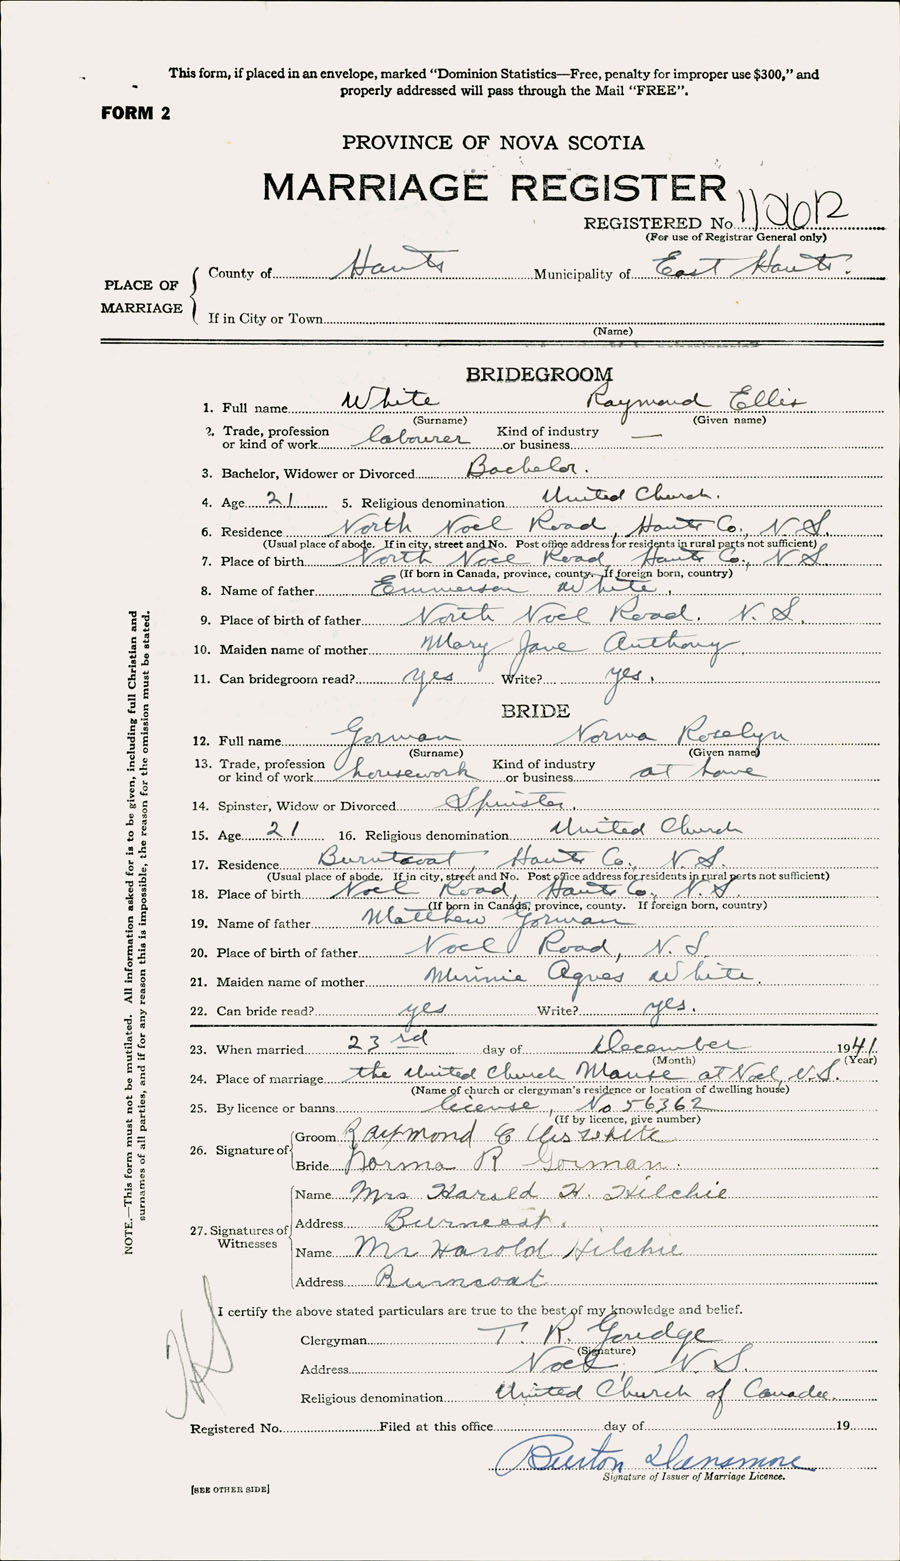 This form, if placed in an envelope, marked “Dominion Statistics—Free, penalty for improper use $300,” and
properly addressed will pass through the Mail “FREE”.
FORM 2
PROVINCE OF NOVA SCOTIA
MARRIAGE REGISTER
REGISTERED No.
(For use of Registrar General only)
PLACE OF MARRIAGE
County of Hants Municipality of East Hants.
If in City or Town
(Name)
BRIDEGROOM
1. Full name White Raymond Ellis
(Surname) (Given name)
2. Trade, profession or kind of work labourer Kind of industry or business —
3. Bachelor, Widower or Divorced Bachelor.
4. Age 21 5. Religious denomination United Church.
6. Residence North Noel Road, Hants Co., N.S.
(Usual place of abode. If in city, street and No. Post office address for residents in rural parts not sufficient)
7. Place of birth North Noel Road, Hants Co., N.S.
(If born in Canada, province, county. If foreign born, country)
8. Name of father Emmerson White,
9. Place of birth of father North Noel Road. N.S.
10. Maiden name of mother Mary Jane Anthony
11. Can bridegroom read? yes Write? yes.
BRIDE
12. Full name Gorman Norma Roselyn
(Surname) (Given name)
13. Trade, profession or kind of work housework Kind of industry or business at home
14. Spinster, Widow or Divorced Spinster.
15. Age 21 16. Religious denomination United Church
17. Residence Burntcoat, Hants Co., N.S.
(Usual place of abode. If in city, street and No. Post office address for residents in rural parts not sufficient)
18. Place of birth Noel Road, Hants Co., N.S.
(If born in Canada, province, county. If foreign born, country)
19. Name of father Matthew Gorman
20. Place of birth of father Noel Road, N.S.
21. Maiden name of mother Minnie Agnes White.
22. Can bride read? yes Write? yes.
23. When married 23rd day of December 1941
(Month) (Year)
24. Place of marriage the United Church Manse at Noel, N.S.
(Name of church or clergyman's residence or location of dwelling house)
25. By licence or banns license, No 56362
(If by licence, give number)
26. Signature of
Groom Raymond Ellis White
Bride Norma R Gorman.
27. Signatures of Witnesses
Name Mrs Harold H. Hilchie
Address Burncoat.
Name Mr Harold Hilchie
Address Burncoat
I certify the above stated particulars are true to the best of my knowledge and belief.
Clergyman T. R. Goudge
(Signature)
Address Noel, N.S.
Religious denomination United Church of Canada.
Registered No. Filed at this office day of 19
Burton Densmore
Signature of Issuer of Marriage Licence.
[SEE OTHER SIDE]
NOTE.—This form must not be mutilated. All information asked for is to be given, including full Christian and
surnames of all parties, and if for any reason this is impossible, the reason for the omission must be stated.